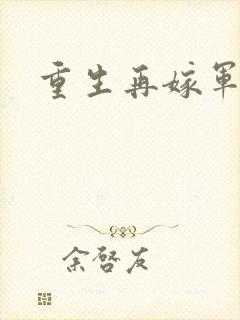 重生再嫁军
余啓友